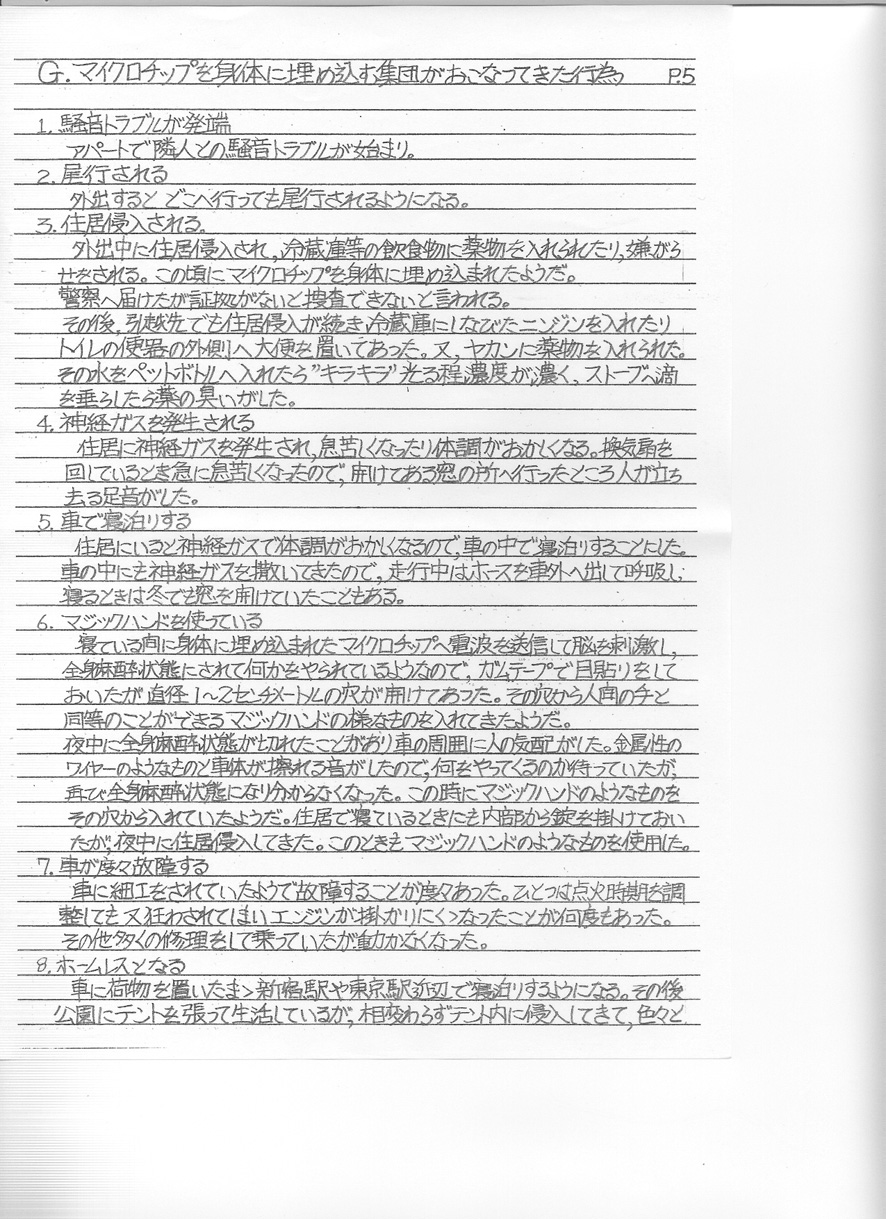 G.マイクロチップを身体に埋め込む集団がおこなってきた行為 P.5
1.騒音トラブルが発端
アパートで隣人との騒音トラブルが始まり。
2.尾行される
外出するとどこへ行っても尾行されるようになる。
3.住居侵入される。
外出中に住居侵入され,冷蔵庫等の飲食物に薬物を入れられたり,嫌がら
せをされる。この頃にマイクロチップを身体に埋め込まれたようだ。
警察へ届けたが証拠がないと捜査できないと言われる。
その後,引越先でも住居侵入が続き,冷蔵庫にしなびたニンジンを入れたり
トイレの便器の外側へ大便を置いてあった。又,ヤカンに薬物を入れられた。
その水をペットボトルへ入れたら"キラキラ"光る程濃度が濃く,ストーブへ滴
を垂らしたら薬の臭いがした。
4.神経ガスを発生される
住居に神経ガスを発生され,息苦しくなったり体調がおかしくなる。換気扇を
回しているとき急に息苦しくなったので,開けてある窓の所へ行ったところ人が立ち
去る足音がした。
5.車で寝泊りする
住居にいると神経ガスで体調がおかしくなるので,車の中で寝泊りすることにした。
車の中にも神経ガスを撒いてきたので,走行中はホースを車外へ出して呼吸し,
寝るときは冬でも窓を開けていたこともある。
6.マジックハンドを使っている
寝ている間に身体に埋め込まれたマイクロチップへ電波を送信して脳を刺激し,
全身麻酔状態にされて何かをやられているようなので,ガムテープで目貼りをして
おいたが直径1〜2センチメートルの穴が開けてあった。その穴から人間の手と
同等のことができるマジックハンドの様なものを入れてきたようだ。
夜中に全身麻酔状態が切れたことがあり車の周囲に人の気配がした。金属性の
ワイヤーのようなものと車体が擦れる音がしたので,何をやってくるのか待っていたが,
再び全身麻酔状態になり分からなくなった。この時にマジックハンドのようなものを
その穴から入れていたようだ。住居で寝ているときにも内部から錠を掛けておい
たが,夜中に住居侵入してきた。このときもマジックハンドのようなものを使用した。
7.車が度々故障する
車に細工をされていたようで故障することが度々あった。ひとつは点火時期を調
整しても又狂わされてしまいエンジンが掛かりにくゝなったことが何度もあった。
その他多くの修理をして乗っていたが動かなくなった。
8.ホームレスとなる
車に荷物を置いたまゝ新宿駅や東京駅近辺で寝泊りするようになる。その後
公園にテントを張って生活しているが,相変わらずテント内に侵入してきて,色々と